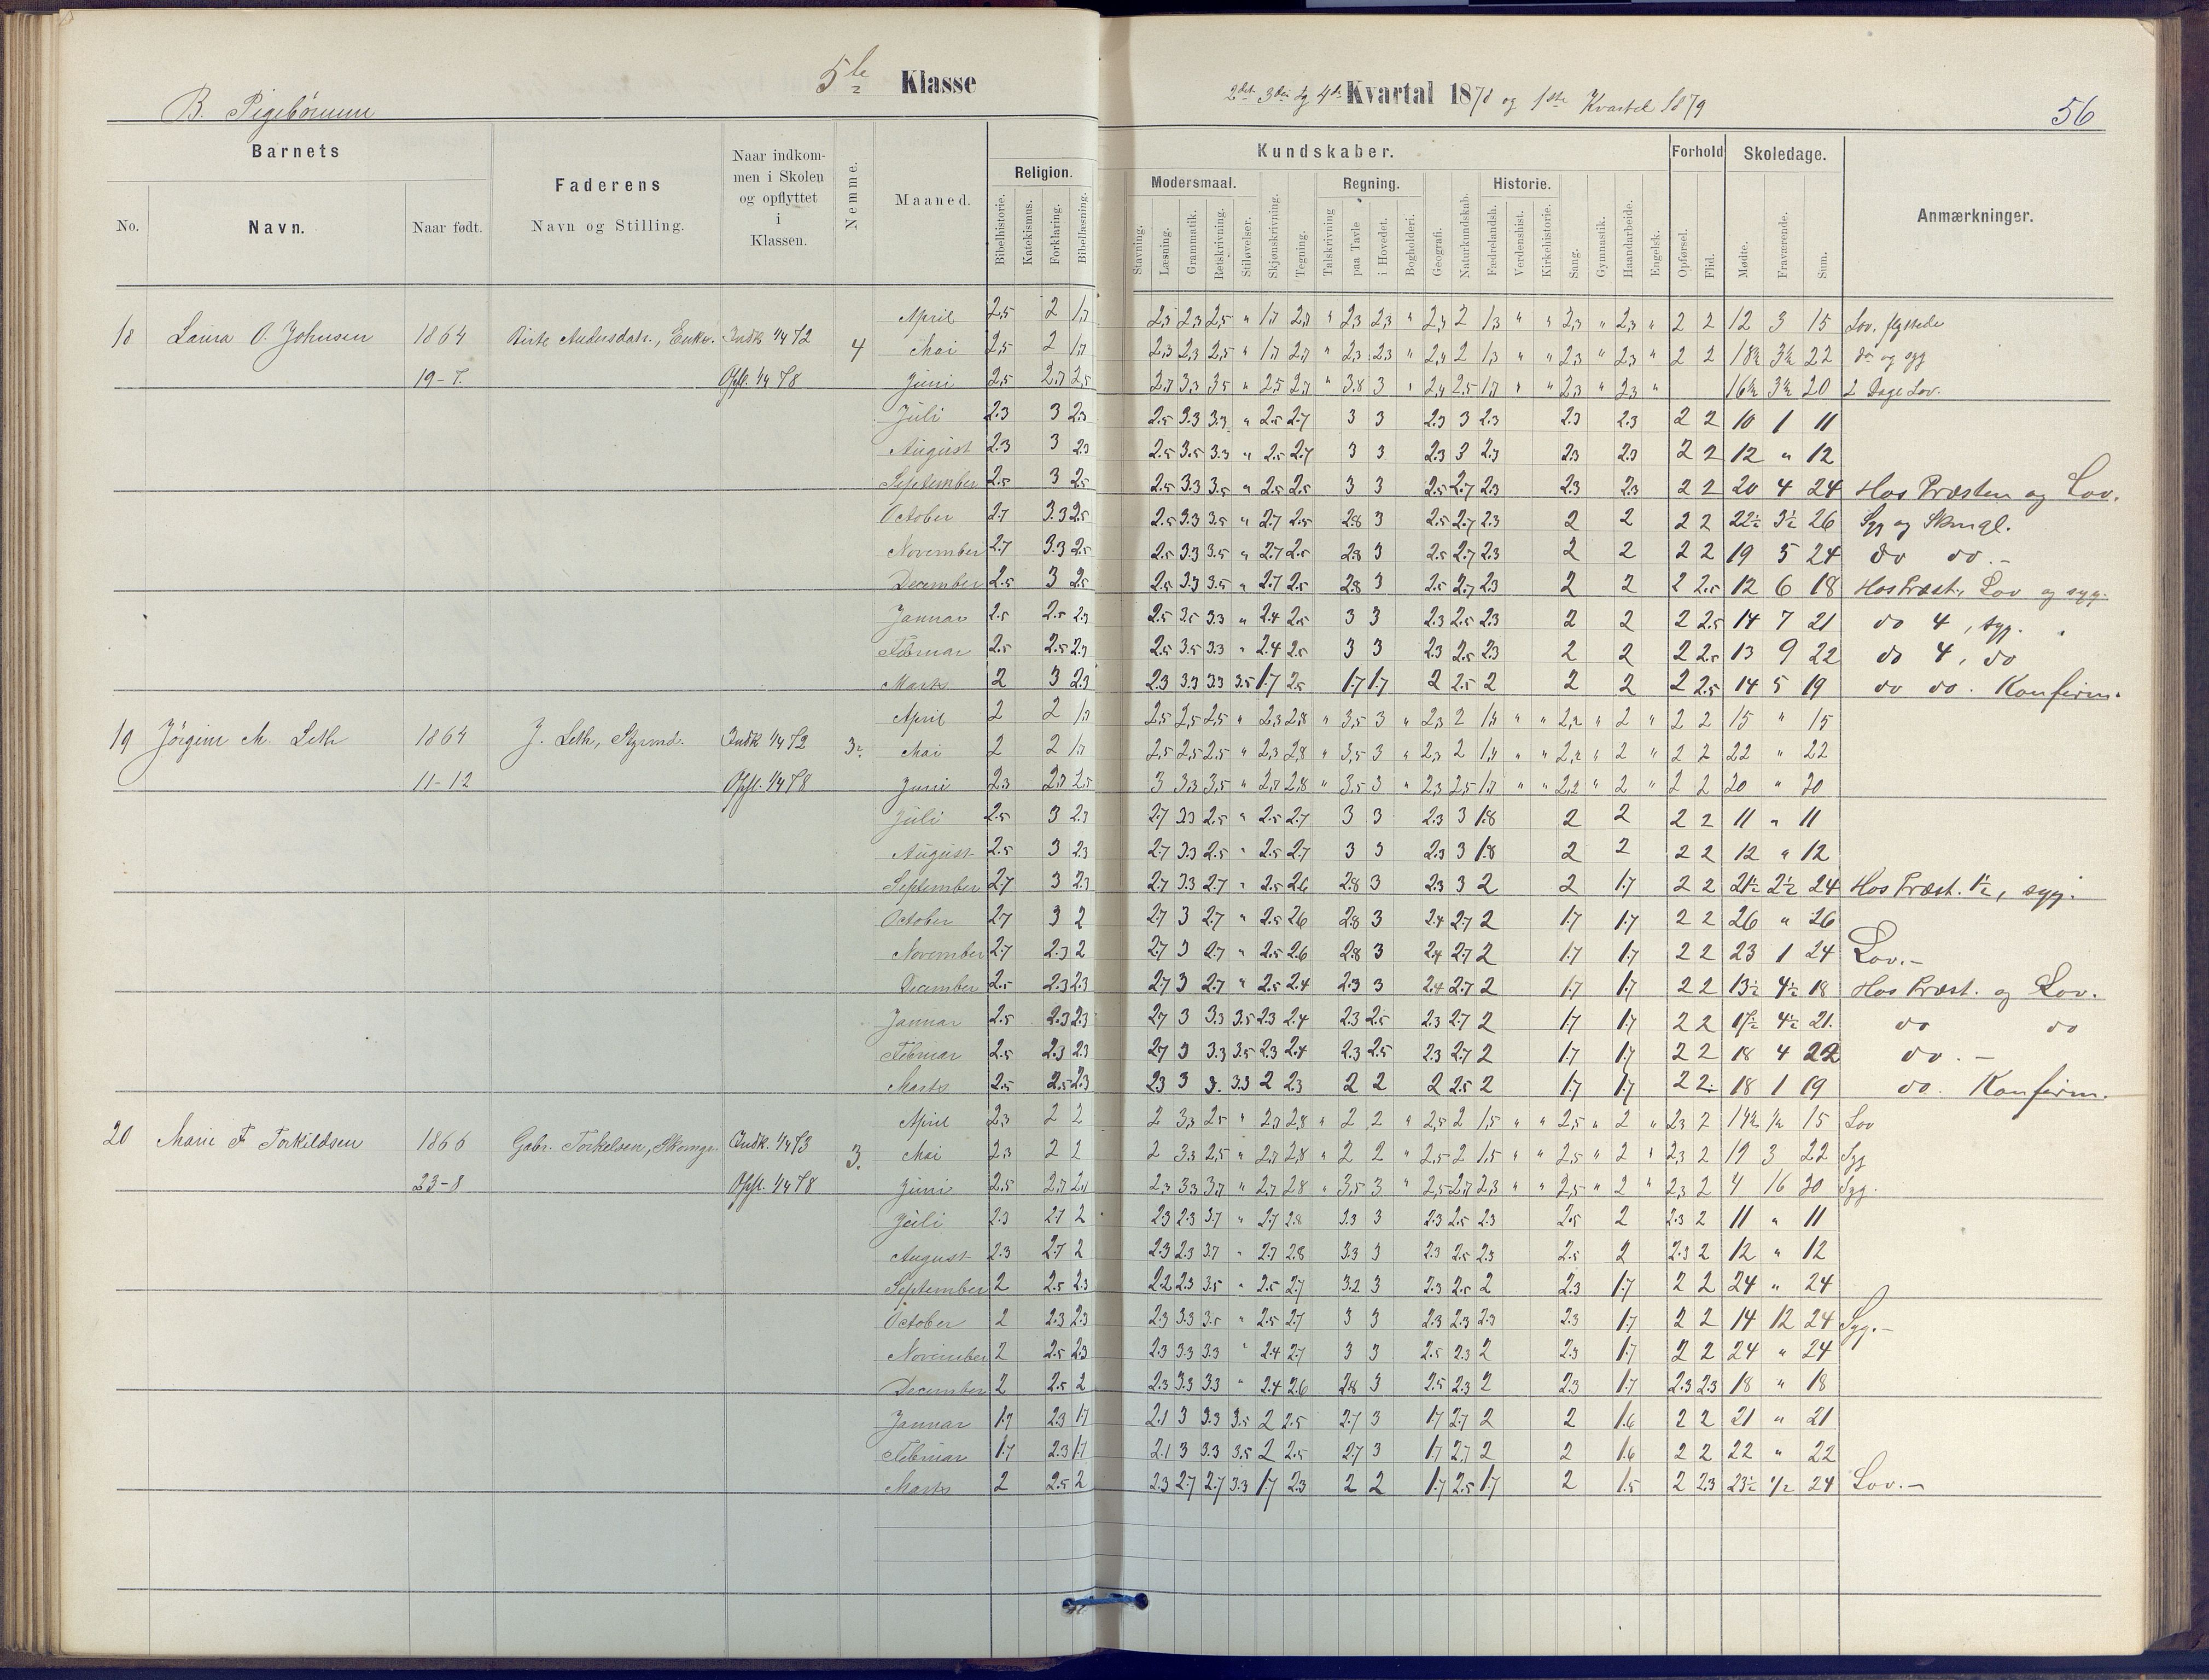 5te Klasse
2det 3die og 4de Kvartal 1878 og 1ste Kvartal 1879
B. Pigebørnene
56
Barnets
Faderens
Navn og Stilling.
Naar indkommen i Skolen og opflyttet i Klassen.
Nemme.
Maaned.
Kundskaber.
Forhold
Skoledage.
Anmærkninger.
No.
Navn.
Naar født.
Religion.
Modersmaal.
Regning.
Historie.
Bibelhistorie.
Katekismus.
Forklaring.
Bibellæsning.
Stavning.
Læsning.
Grammatik.
Retskrivning.
Stiløvelser.
Skjønskrivning.
Tegning.
Talskrivning
paa Tavle
i Hovedet.
Bogholderi.
Geografi.
Naturkundskab.
Fædrelandsh.
Verdenshist.
Kirkehistorie.
Sang.
Gymnastik.
Haandarbeide.
Engelsk.
Opførsel.
Flid.
Mødte.
Fraværende.
Sum.
18 Laura O. Johnsen 1864 19-7. Enke. Indk 1/4 72 Opfl. 1/4 78 4
April 2,5 2 1,7 2 2 12 3 15 Lov.
Mai 2,5 2 1,7 2 2 18½ 3½ 22 do og syg
Juni 2,5 2,7 2,5 16½ 3½ 20 2 Dage Lov.
Juli 2.3 3 2.3 2.5 3.3 3.3 " 2.5 2.7 3 3 2.3 3 2.3 2.3 2.3 2 2 10 1 11
August 2.3 3 2.3 2.5 3.5 3.3 " 2.5 2.7 3 3 2.3 3 2.3 2.3 2.3 2 2 12 " 12
September 2.5 3 2.5 2.5 3.3 3.5 " 2.5 2.5 3 3 2.5 2.7 2.3 2.3 2.3 2 2 20 4 24 Hos Præsten og Lov.
October 2.7 3.3 2.5 2.5 3.3 3.5 " 2.7 2.5 2.8 3 2.5 2.7 2.3 2 2 2 2 22½ 3½ 26 Syg og Skmgl.
November 2.7 3.3 2.5 2.5 3.3 3.5 " 2.7 2.5 2.8 3 2.5 2.7 2.3 2 2 2 2 19 5 24 do do.-
December 2.5 3 2.5 2.5 3.3 3.5 " 2.7 2.5 2.8 3 2.5 2.7 2.3 2 2 2 2.5 12 6 18 Hos Præst., Lov og syg.
Januar 2.5 2.5 2.3 2.5 3.5 3.3 " 2.4 2.5 3 3 2.3 2.5 2.3 2 2 2 2.5 14 7 21 do 4, syg.
Februar 2.5 2.5 2.3 2.5 3.5 3.3 " 2.4 2.5 3 3 2.3 2.5 2.3 2 2 2 2.5 13 9 22 do 4, do
Marts 2 3 2.3 2.3 3.3 3.3 3.5 1.7 2.5 1.7 1.7 2 2.5 2 2 2 2 2.5 14 5 19 do do. Konfirm.
19 Jörgine M. Leth 1864 11-12 J. Leth, Styrmd. Indk 1/4 72 Opfl. 1/4 78
April 2 2 1,7 2 2 15 " 15
Mai 2 2 1,7 2 2 22 " 22
Juni 2,3 2,7 2,5 2 2 20 " 20
Juli 2.5 3 2.3 2.7 3.3 2.5 " 2.5 2.7 3 3 2.3 3 1.8 2 2 2 2 11 " 11
August 2.5 3 2.3 2.7 3.3 2.5 " 2.5 2.7 3 3 2.3 3 1.8 2 2 2 2 12 " 12
September 2.7 3 2.3 2.7 3.3 2.7 " 2.5 2.6 2.8 3 2.3 3 2 2 1.7 2 2 21½ 2½ 24 Hos Præst. 1½, syg.
October 2.7 3 2 2.7 3 2.7 " 2.5 2.6 2.8 3 2.4 2.7 2 1.7 1.7 2 2 26 " 26
November 2.7 2.3 2 2.7 3 2.7 " 2.5 2.6 2.8 3 2.4 2.7 2 1.7 1.7 2 2 23 1 24 Lov.-
December 2.5 2.3 2.3 2.7 3 2.7 " 2.5 2.4 2.3 3 2.4 2.7 2 1.7 1.7 2 2 13½ 4½ 18 Hos Præst. og Lov.
Januar 2.5 2.3 2.3 2.7 3 3.3 3.5 2.3 2.4 2.3 2.5 2.3 2.7 2 1.7 1.7 2 2 17½ 4½ 21. do do
Februar 2.5 2.3 2.3 2.7 3 3.3 3.5 2.3 2.4 2.3 2.5 2.3 2.7 2 1.7 1.7 2 2 18 4 22 do.-
Marts 2.5 2.5 2.3 2.3 3 3. 3.3 2 2.3 2 2 2 2.5 2 1.7 1.7 2 2. 18 1 19 do. Konfirm.
20 Marie F Torkildsen 1866 23-8 Gabr. Torkelsen, Indk. 1/4 73 Opfl. 1/4 78 3.
April 2,3 2 2 2,3 2 14½ ½ 15 Lov
Mai 2,3 2 2 2,3 2 19 3 22 Syg
Juni 2,5 2,3 2 4 16 20 Syg.
Juli 2.3 2.7 2 2.3 2.3 3.7 " 2.7 2.8 3.3 3 2.3 2.5 2.3 2.5 2 2.3 2 11 " 11
August 2.3 2.7 2 2.3 2.3 3.7 " 2.7 2.8 3.3 3 2.3 2.5 2.3 2.5 2 2.3 2 12 " 12
September 2 2.5 2.3 2.2 2.3 3.5 " 2.5 2.7 3.2 3 2.3 2.5 2 2.3 1.7 2 2 24 " 24
October 2 2.3 2.3 2.3 3.3 3.5 " 2.5 2.7 3 3 2.3 2.3 2.3 2.3 1.7 2 2 14 12 24 Syg.-
November 2 2.5 2.3 2.3 3.3 3.3 " 2.4 2.7 3 3 2.5 2.3 2 2.3 1.7 2 2 24 " 24
December 2 2.5 2 2.3 3.3 3.3 " 2.4 2.6 2.8 3 2.5 2.3 2 2.3 1.7 2.3 2.3 18 " 18
Januar 1.7 2.3 1.7 2.1 3 3.3 3.5 2 2.5 2.7 3 1.7 2.7 2 2 1.6 2 2 21 " 21
Februar 1.7 2.3 1.7 2.1 3 3.3 3.5 2 2.5 2.7 3 1.7 2.7 2 2 1.6 2 2 22 " 22
Marts 2 2.5 2 2.3 2.7 2.7 3.3 1.7 2.3 2 2 1.7 2.5 1.7 2 1.5 2 2.3 23½ ½ 24 Lov.-